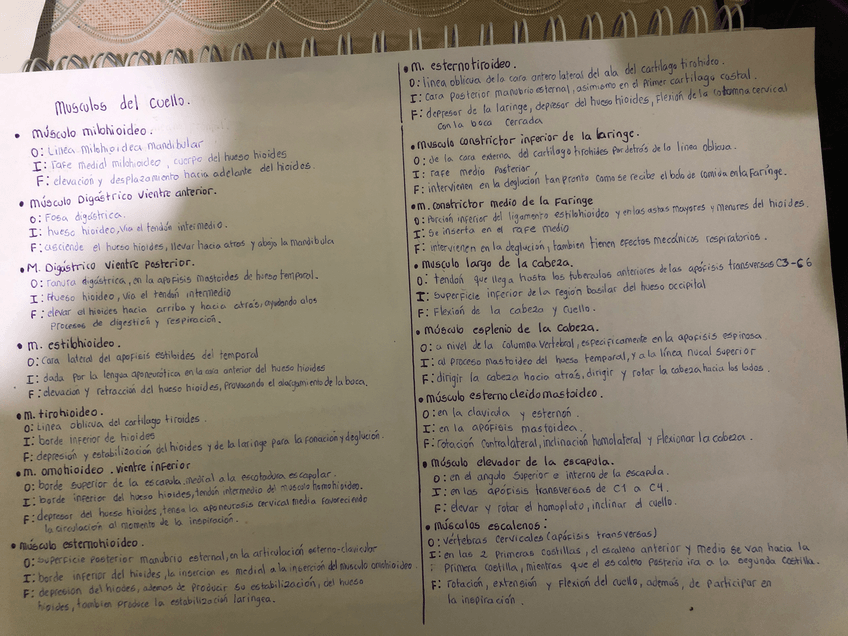 Musculos del cuello.
• Músculo milohioideo.
O: Linea milohioidea mandibular
I: rafe medial milohioideo, cuerpo del hueso hioides
F: elevación y desplazamiento hacia adelante del hioides.
• Músculo Digástrico Vientre anterior.
O: Fosa digástrica.
I: hueso hioideo, vía el tendón intermedio.
F: asciende el hueso hioides, llevar hacia atras y abajo la mandibula
• M. Digástrico Vientre Posterior.
O: ranura digástrica, en la apofisis mastoides de hueso temporal.
I: Hueso hioideo, vía el tendón intermedio
F: elevar el hioides hacia arriba y hacia atrás, ayudando a los
procesos de digestión y respiración.
• m. estilohioideo.
O: Cara lateral del apofisis estiloides del temporal
I: dada por la lengua aponeurótica en la cara anterior del hueso hioides
F: elevacion y retracción del hueso hioides, provocando el alargamiento de la boca.
• m. tirohioideo.
O: Linea oblicua del cartilago tiroides.
I: borde inferior de hioides
F: depresión y estabilización del hioides y de la laringe para la fonacion y deglución.
• m. omohioideo. vientre inferior
O: borde superior de la escapula, medial a la escotadura escapular.
I: borde inferior del hueso hioides, tendón intermedio del musculo homohioideo.
F: depresor del hueso hioides, tensa la aponeurosis cervical media favoreciendo
la circulación al momento de la inspiración.
• músculo esternohioideo.
O: superficie posterior manubrio esternal, en la articulación externo-clavicular
I: borde inferior del hioides, la insercion es medial a la inserción del musculo omohioideo.
F: depresion del hioides, ademas de producir su estabilización, del hueso
hioides, tambien produce la estabilización laringea.
• m. esternotiroideo.
O: linea oblicua de la cara antero lateral del ala del cartilago tirohideo.
I: Cara posterior manubrio esternal, asimismo en el Primer cartilago costal.
F: depresor de la laringe, depresor del hueso hioides, Flexión de la columna cervical
con la boca cerrada
• musculo constrictor inferior de la laringe.
O: de la cara externa del cartilago tirohides por detrás de la linea oblicua.
I: rafe medio posterior
F: intervienen en la deglución tan pronto como se recibe el bolo de comida en la Faringe.
• m. constrictor medio de la Faringe
O: Porción inferior del ligamento estilohioideo y en las astas mayores y menores del hioides.
I: Se inserta en el rafe medio
F: intervienen en la deglución, tambien tienen efectos mecánicos respiratorios.
• musculo largo de la cabeza.
O: tendón que llega hasta los tuberculos anteriores de las apófisis transversas C3-C6
I: Superficie inferior de la región basilar del hueso occipital
F: Flexión de la cabeza y cuello.
• músculo esplenio de la cabeza.
O: a nivel de la columna vertebral, especificamente en la apofisis espinosa
I: al proceso mastoideo del hueso temporal, y a la línea nucal superior
F: dirigir la cabeza hacia atrás, dirigir y rotar la cabeza hacia los lados.
• músculo esternocleidomastoideo.
O: en la clavicula y esternón.
I: en la apófisis mastoidea.
F: rotación contralateral, inclinación homolateral y flexionar la cabeza.
• Músculo elevador de la escapula.
O: en el angulo superior e interno de la escapula.
I: en las apófisis transversas de C1 a C4.
F: elevar y rotar el homoplato, inclinar el cuello.
• músculos escalenos:
O: vértebras cervicales (apófisis transversas)
I: en las 2 primeras costillas, el escaleno anterior y medio se van hacia la
primera costilla, mientras que el escaleno posterior ira a la segunda costilla.
F: rotación, extensión y flexión del cuello, además, de participar en
la inspiración.